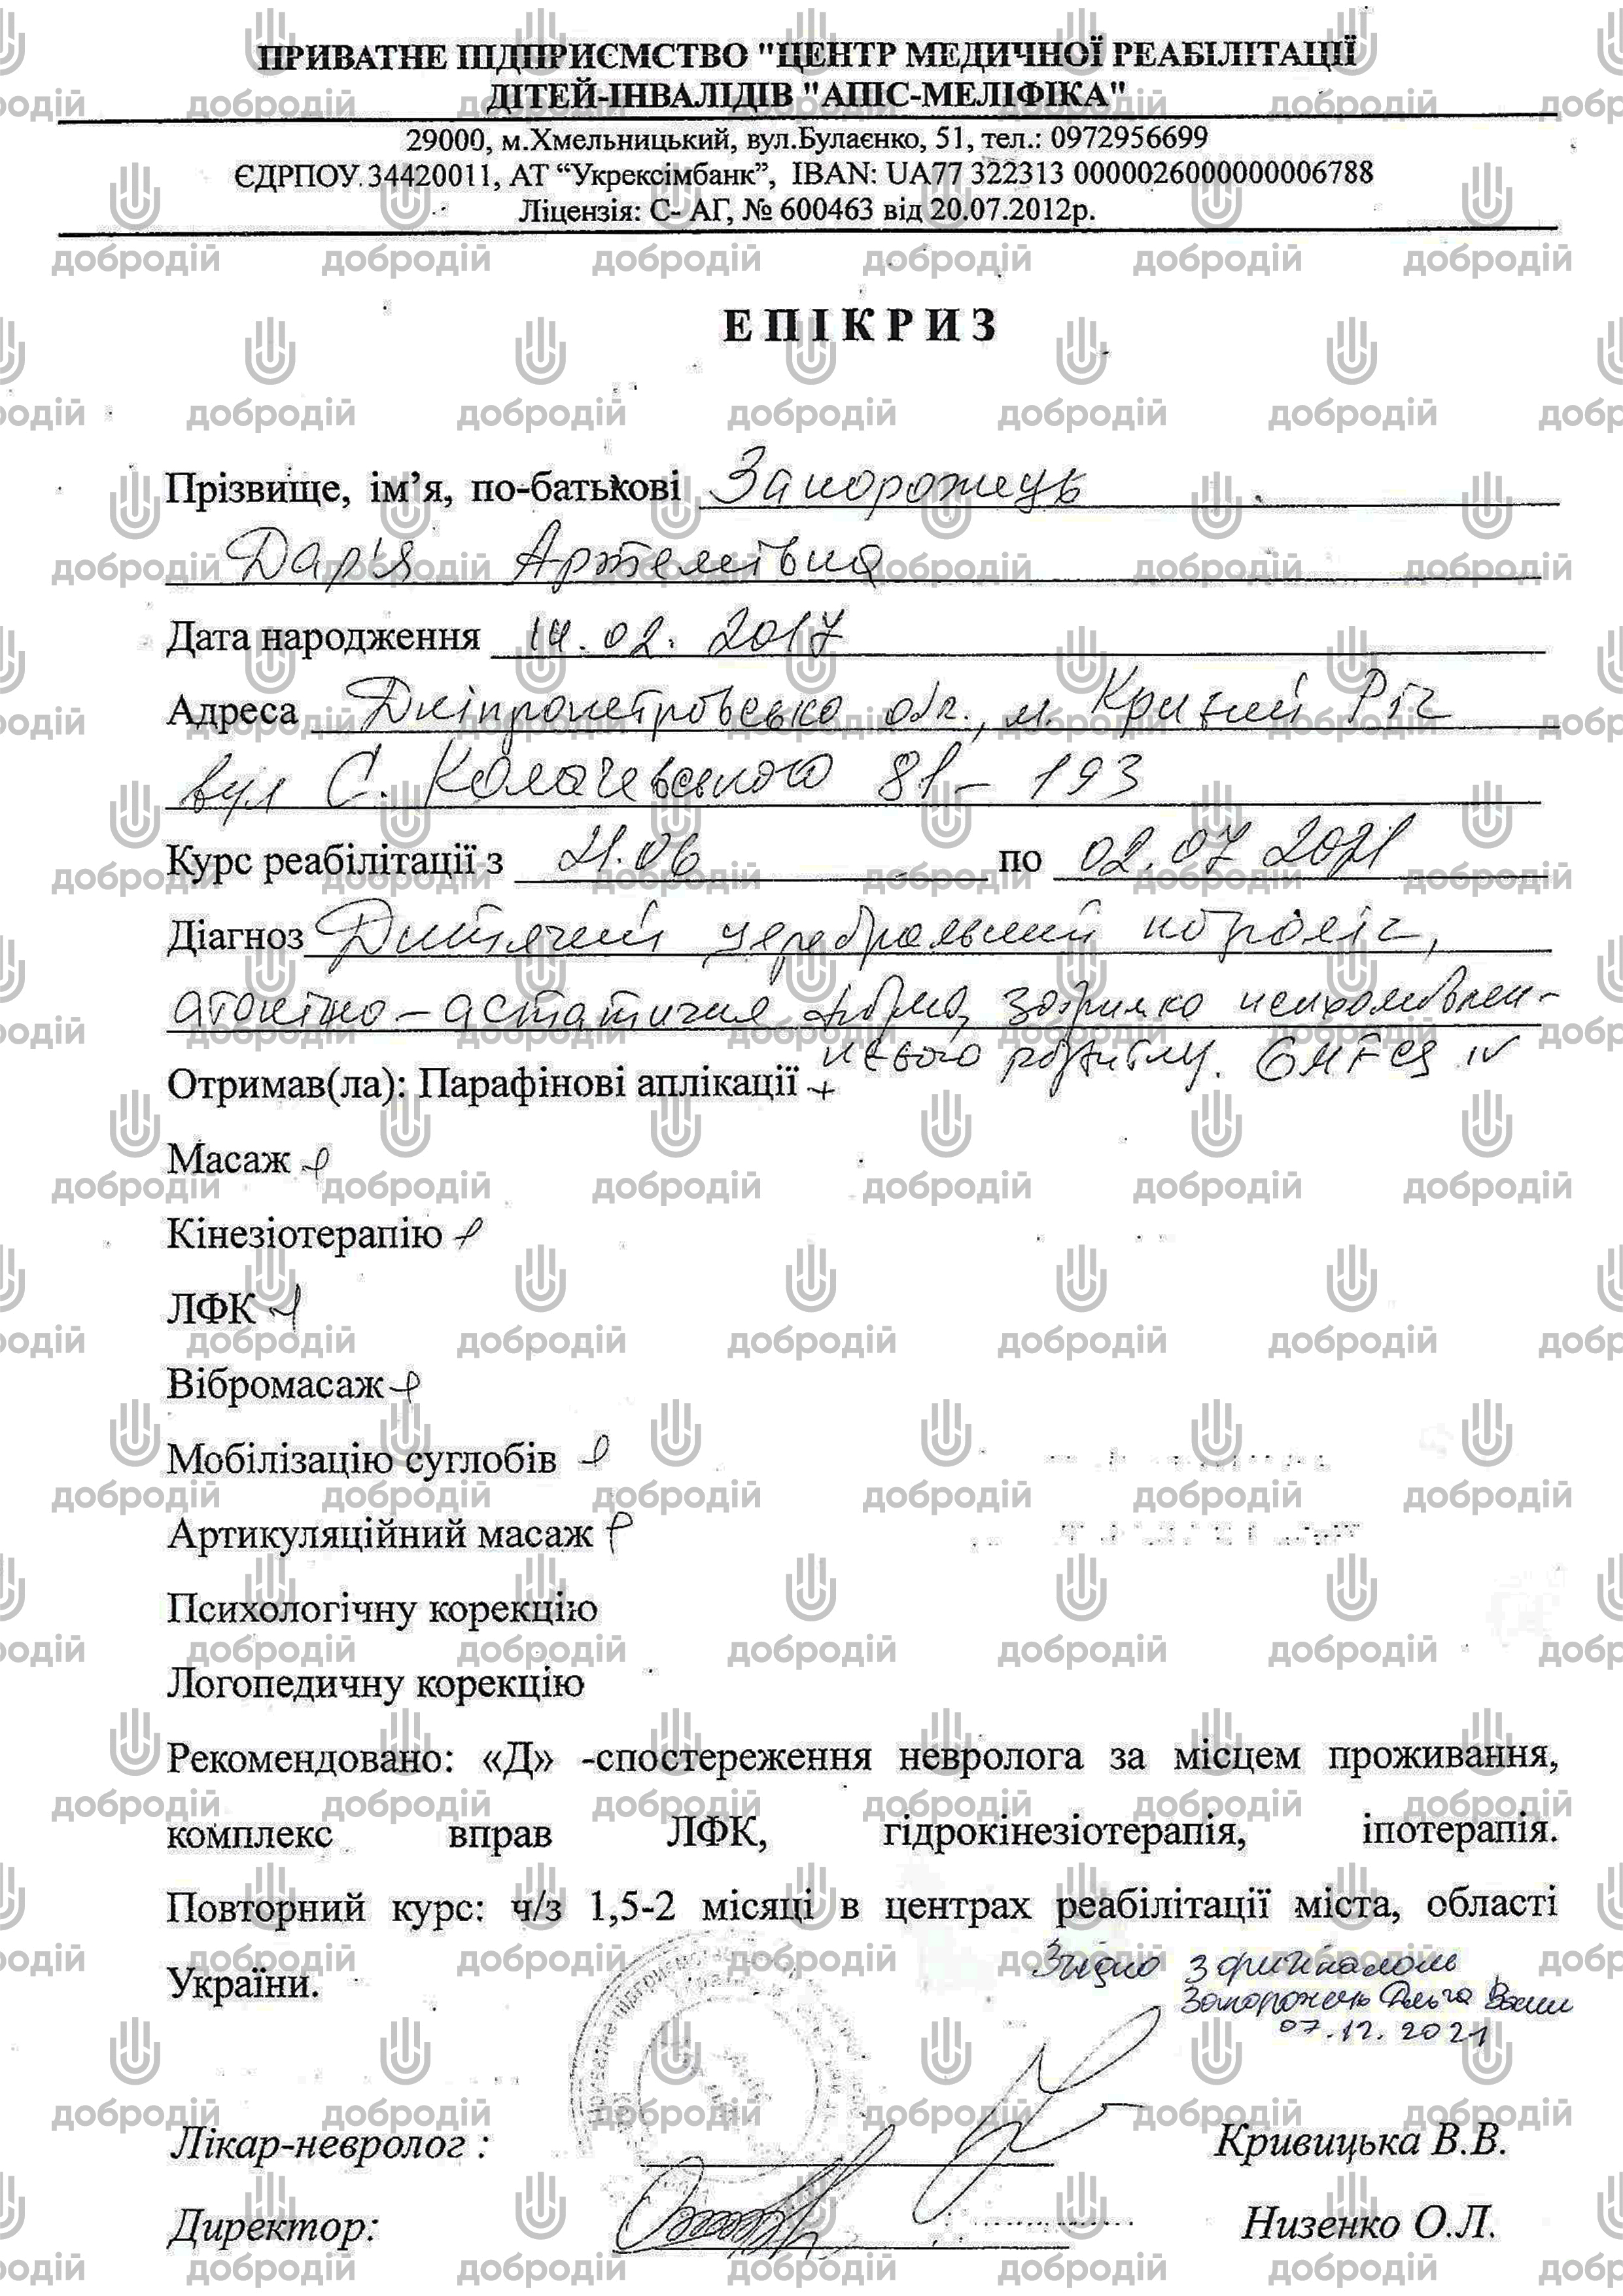 ПРИВАТНЕ ПІДПРИЄМСТВО "ЦЕНТР МЕДИЧНОЇ РЕАБІЛІТАЦІЇ
ДІТЕЙ-ІНВАЛІДІВ "АПІС-МЕЛІФІКА"
29000, м.Хмельницький, вул.Булаєнко, 51, тел.: 0972956699
ЄДРПОУ 34420011, АТ “Укрексімбанк”, IBAN: UA77 322313 0000026000000006788
Ліцензія: С- АГ, № 600463 від 20.07.2012р.
ЕПІКРИЗ
Прізвище, ім’я, по-батькові Запорожець
Дар'я Артемівна
Дата народження 14.02.2017
Адреса Дніпропетровська обл., м. Кривий Ріг
вул С. Колачевського 81-193
Курс реабілітації з 21.06 по 02.07 2021
Діагноз Дитячий церебральний параліч,
атонічно-астатична форма, затримка психомовлен-
нєвого розвитку. GMFCS IV
Отримав(ла): Парафінові аплікації +
Масаж +
Кінезіотерапію +
ЛФК +
Вібромасаж +
Мобілізацію суглобів +
Артикуляційний масаж +
Психологічну корекцію
Логопедичну корекцію
Рекомендовано: «Д» -спостереження невролога за місцем проживання,
комплекс вправ ЛФК, гідрокінезіотерапія, іпотерапія.
Повторний курс: ч/з 1,5-2 місяці в центрах реабілітації міста, області
України.
Згідно з оригіналом
Запорожець Ольга
07.12.2021
Лікар-невролог : Кривицька В.В.
Директор: Низенко О.Л.
добродій